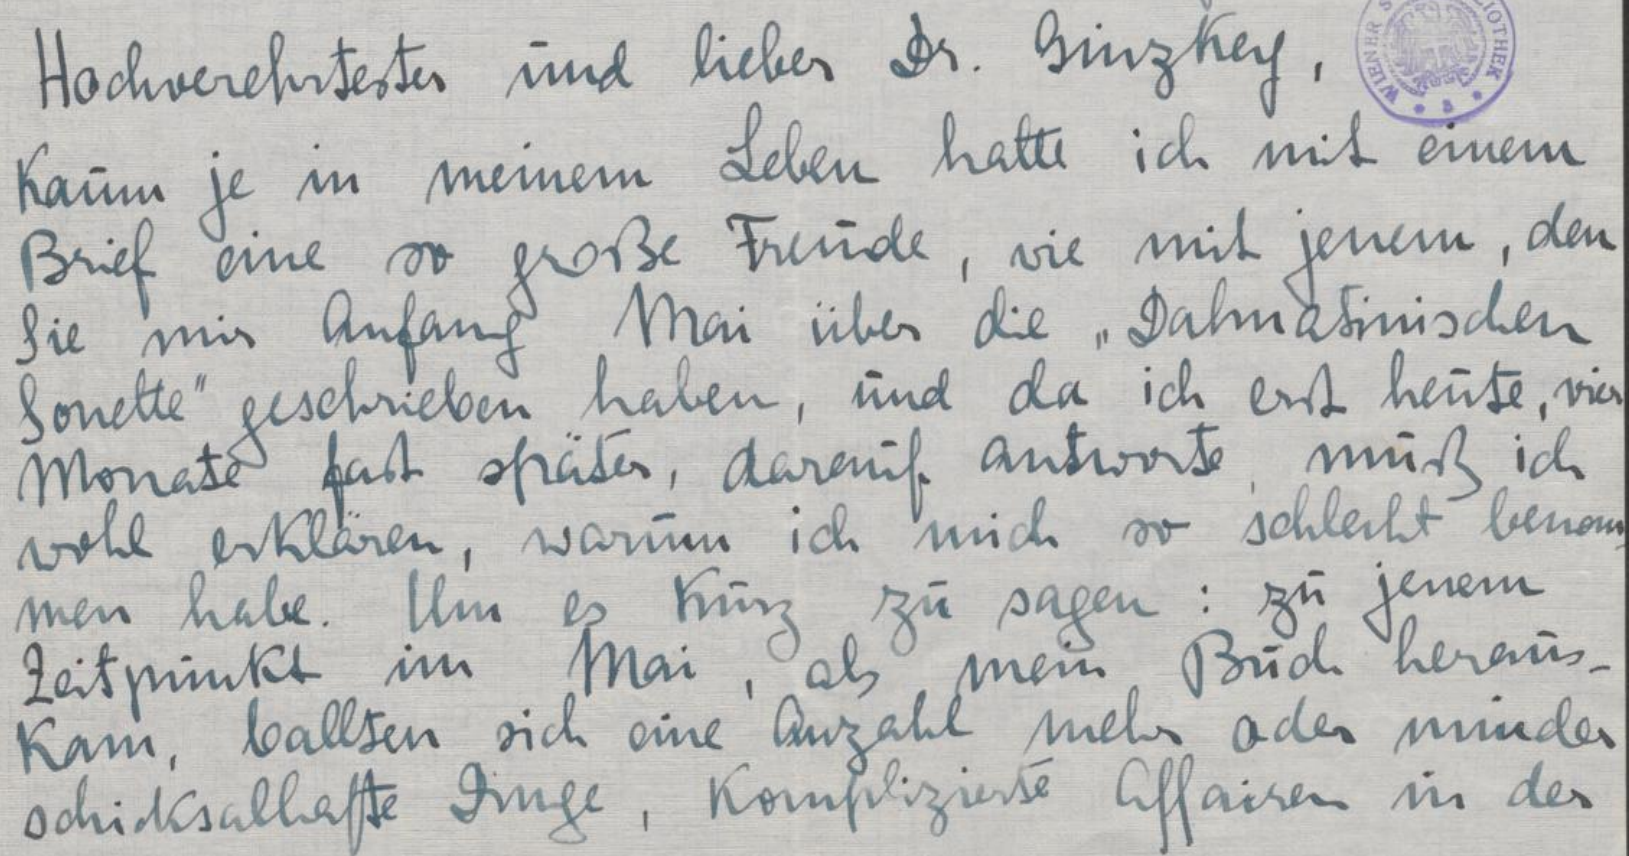 Hochverehrtester und lieber Dr. Ginzkey,
kaum je in meinem Leben hatte ich mit einem
Brief eine so große Freude, wie mit jenem, den
Sie mir Anfang Mai über die „Dalmatinischen
Sonette" geschrieben haben, und da ich erst heute, vier
Monate fast später, darauf antworte, muß ich
wohl erklären, warum ich mich so schlecht benom
men habe. Um es kurz zu sagen: zu jenem
Zeitpunkt im Mai, als mein Buch heraus-
kam, ballten sich eine Anzahl mehr oder minder
schicksalhafte Dinge, komplizierte Affairen in der
WIENER S
LIOTHEK